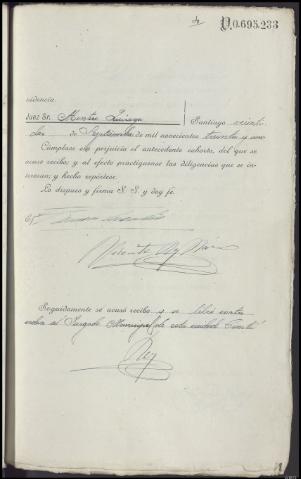 D.0.695.233
videncia
Juez Sr. Mestre Zúñiga
Santiago
dos de Septiembre de mil novecientos treinta y uno
Cúmplase sin perjuicio el antecedente exhorto, del que se
acuse recibo; y al efecto practíquense las diligencias que se in-
teresan; y hecho repórtese.
Lo dispuso y firma S. S. y doy fe.
Seguidamente se acusó recibo y se libró carta
orden al Juzgado Municipal de esta ciudad
Rey